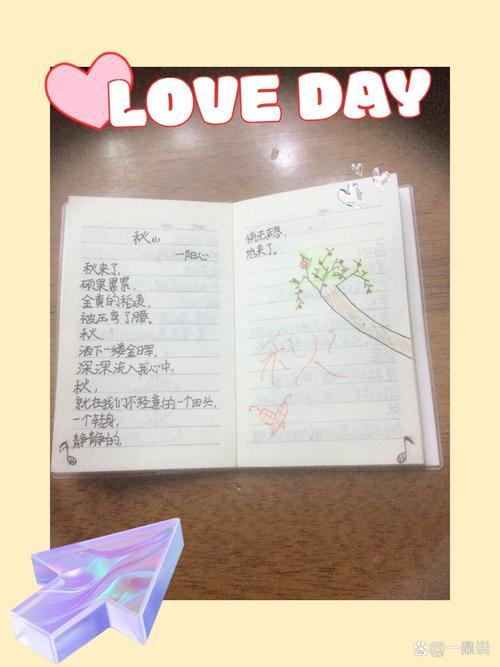 LOVE DAY
秋
—阳心
秋来了,
硕果累累.
金黄的稻穗,
被压弯了腰。
秋,
洒下一缕金晖,
深深流入我心中。
秋,
就在我们不经意的一个回头,
一个转身,
静静的,
悄无声息.
她来了。
秋
@一鼎说